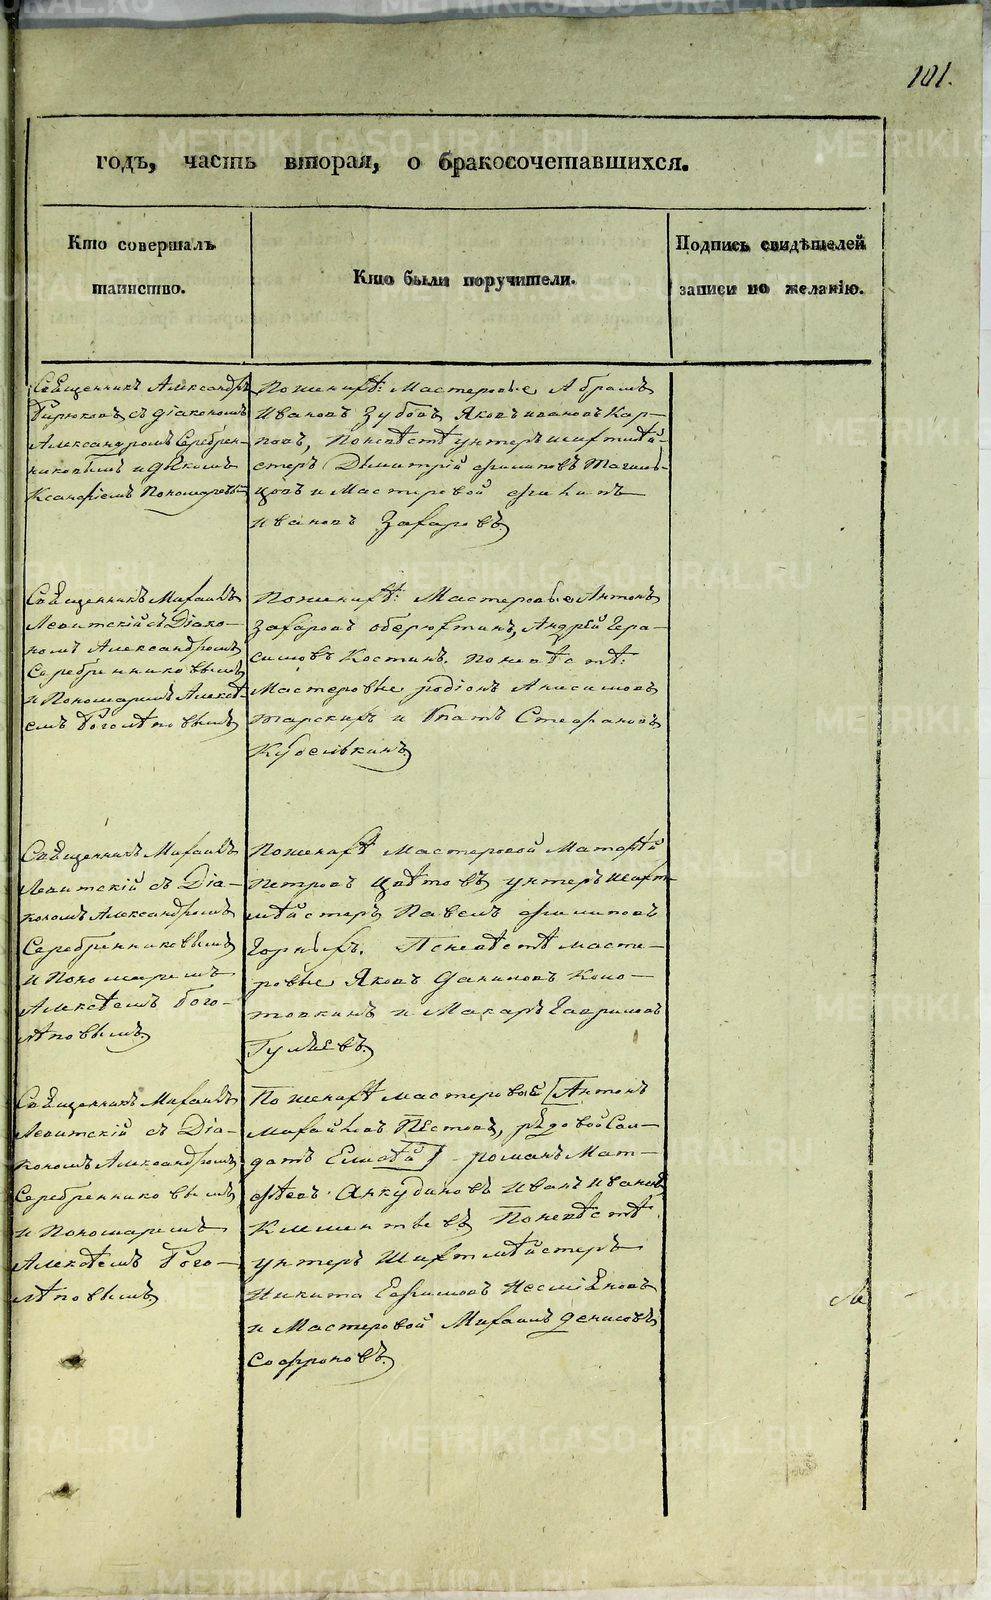 101.
годъ, часть вторая, о бракосочетавшихся.
Кто совершалъ
таинство.
Кто были поручители.
Подпись свидѣтелей
записи по желанію.
Священникъ Александръ
Бирюковъ съ діакономъ
Александромъ Серебрен-
никовымъ и дьякомъ
Ксанфіемъ Пономаревы
Поженихѣ: Мастеровые Абрамъ
Ивановъ Зубовъ, Яковъ ивановъ Кар-
повъ, Поневѣстѣ унтеръ шихтмѣй-
стеръ Дмитрій филиповъ Тагиль-
цовъ и Мастеровой филипъ
Ивановъ Захаровъ
Священникъ Михаилъ
Левитскій съ Діако-
номъ Александромъ
Серебренниковымъ
и Пономаремъ Алексѣ-
емъ Боголѣповымъ
Поженихѣ: Мастеровые Антонъ
Захаровъ оберюхтинъ, Андрей Гера-
симовъ Костинъ. Поневѣстѣ:
Мастеровые родіонъ Анисимовъ
тарскихъ и Стефановъ
Кобелькинъ
Священникъ Михаилъ
Левитскій съ Діа-
кономъ Александромъ
Серебренниковымъ
и Пономаремъ
Алексѣемъ Бого-
лѣповымъ.
Поженихѣ Мастеровой Матфѣй
Петровъ Цвѣтовъ унтеръ шихт
мѣйстеръ Павелъ филиповъ
Горныхъ. Поневѣстѣ масте-
ровые Яковъ Даниловъ Коно-
товкинъ и Макаръ Гавриловъ
Гуляевъ.
Священникъ Михаилъ
Левитскій съ Діа-
кономъ Александромъ
Серебренниковымъ
и Пономаремъ
Алексѣемъ Бого-
лѣповымъ
Поженихѣ мастеровой [Антонъ
Михайловъ Пестовъ, рядовой Сол-
датъ Елисѣй] романъ Мат-
фѣевъ Анкудиновъ Иванъ Ивановъ
Клементьевъ Поневѣстѣ
унтеръ Шихтмѣйстеръ
Никита Ефимовъ Несмѣяновъ
и Мастеровой Михаилъ Денисовъ
Софроновъ.